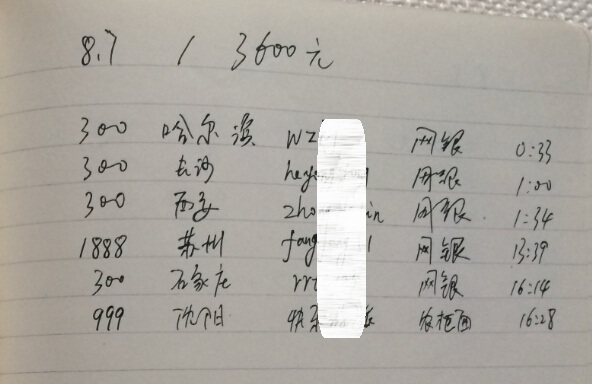 8.7 1 3600元
300 哈尔滨 wz 网银 0:33
300 长沙 heye 网银 1:00
300 西安 zho in 网银 1:34
1888 苏州 fang 网银 13:39
300 石家庄 rr 网银 16:14
999 沈阳 快乐 农柜面 16:28